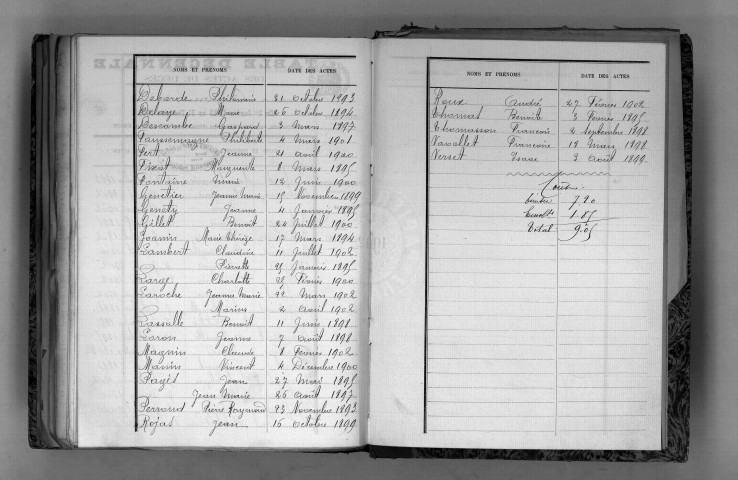 TABLE DÉCENNALE
NOMS ET PRÉNOMS DATE DES ACTES
Debarde Philomène 21 Octobre 1893
Delaye Marie 26 Octobre 1894
Descombe Gaspard 3 Mars 1897
Philiberte 4 Mars 1901
Fert Jeanne 21 Août 1900
Marguerite 8 Mars 1895
Fontaine Marie 12 Juin 1900
Genetier Jeanne Marie 15 Novembre 1899
Genety Jeanne 4 Janvier 1895
Gillet Benoît 24 Juillet 1900
Joanin Marie Thérèse 17 Mars 1894
Lambert Claudine 11 Juillet 1902
Pierrette 25 Janvier 1895
Large Charlotte 28 Février 1900
Laroche Jeanne Marie 22 Mars 1902
Marius 2 Août 1902
Lassalle Benoît 11 Juin 1898
Loron Jeanne 7 Août 1898
Magnin Claude 8 Février 1902
Manin Vincent 4 Décembre 1900
Pagès Jean 27 Mai 1895
Jean Marie 26 Août 1897
Perraud Pierre Raymond 23 Novembre 1893
Rojat Jean 15 Octobre 1899
NOMS ET PRÉNOMS DATE DES ACTES
Roux André 27 Février 1902
Thomas Benoît 3 Février 1895
Thomasson François 2 Septembre 1898
Vavallet Françoise 18 Mars 1898
Verset 3 Août 1899
timbre 7.20
1.85
Total 9.05